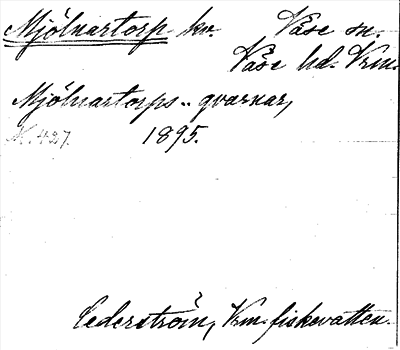 Mjölnartorp kv. Väse sn.
Väse hd. Vrm.
Mjölnartorps-qvarnar,
N. 427. 1895.
Cederström, Vrm. fiskevatten.